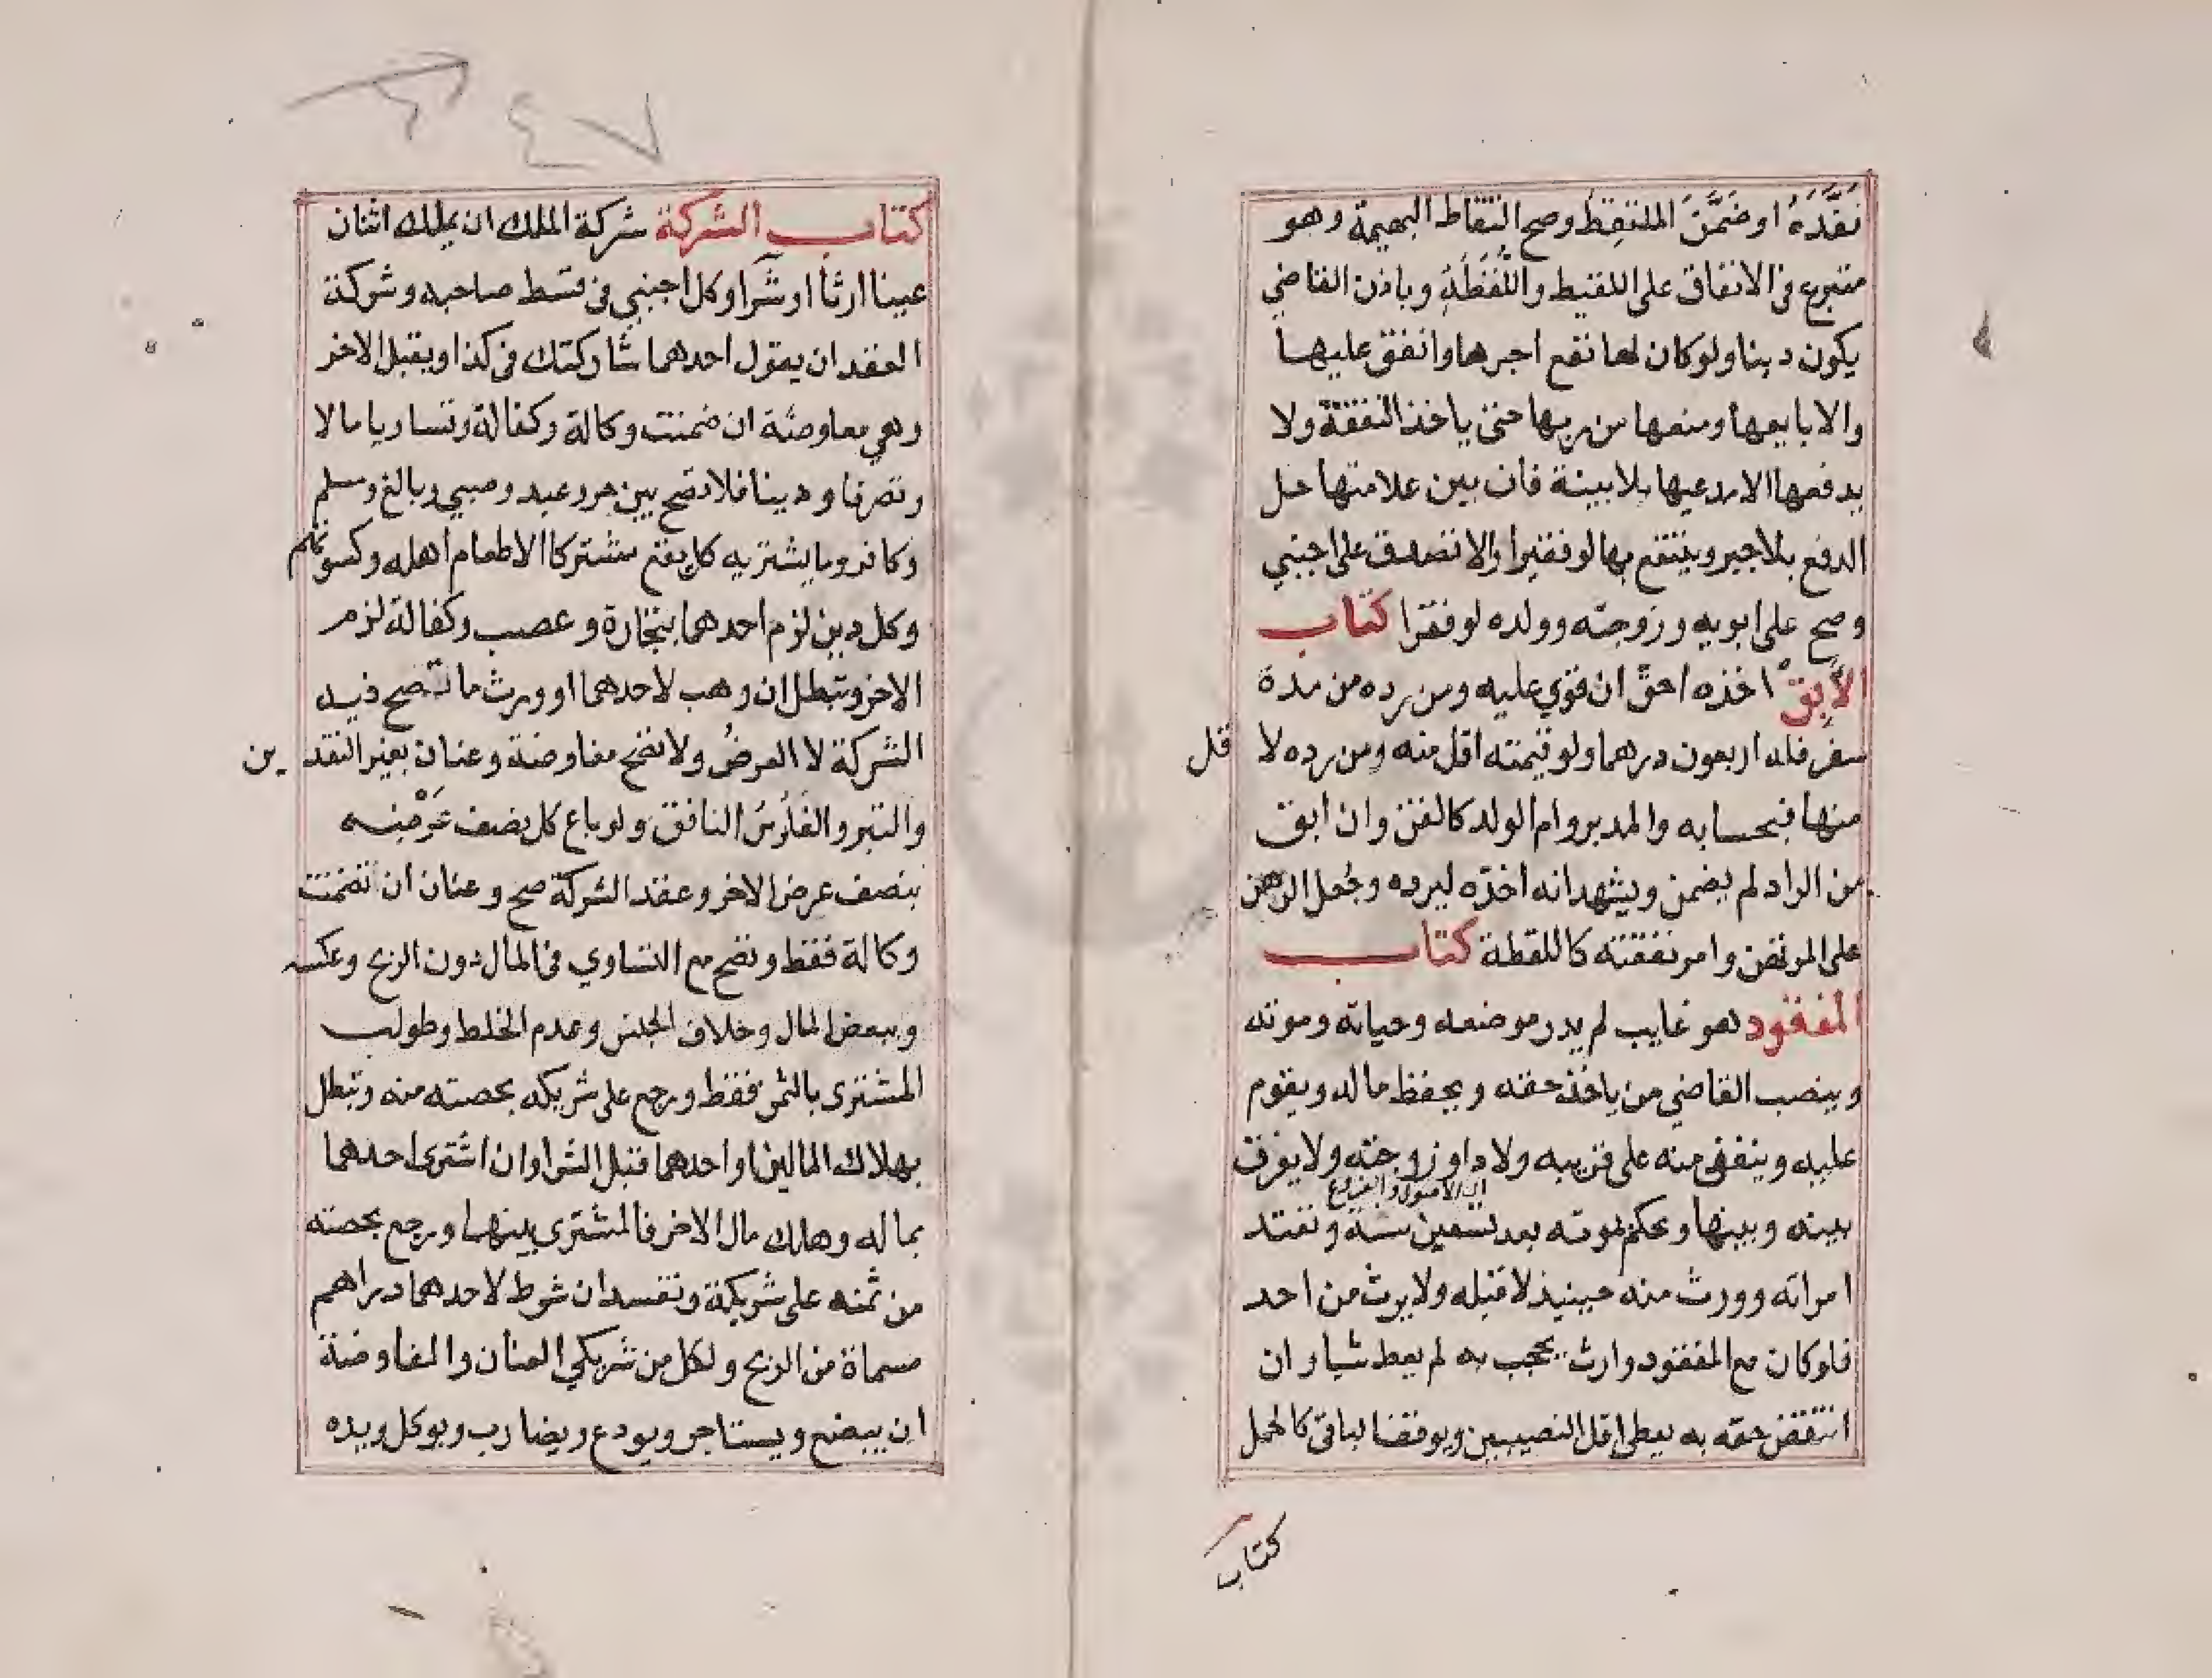 نفَّذَهُ او ضَمَّنَ الملتقِط وصح التقاط البهيمة وهو
متبرع فى الانفاق على اللقيط واللُّقَطَةِ وباذن القاضي
يكون دينا ولو كان لها نفع اجرها وانفق عليها
والا باعها ومنعها من ربها حتى ياخذ النفقة ولا
يدفعها الا مدعيها بلا بينة فان بين علامتها حل
الدفع بلا جبر وينتفع بها لو فقيرا والا تصدق على اجنبي
وصح على ابويه وزوجته وولده لو فقرا كتاب
الآبق اخذه احق ان قوي عليه ومن رده من مدة
سفر فله اربعون درهما ولو قيمته اقل منه ومن رده لا قل
منها فبحسابه والمدبر وام الولد كالقن وان ابق
من الراد لم يضمن ويشهد انه اخذه ليرده وجُعل الرهن
على المرتهن وامر نفقته كاللقطة كتاب
المفقود هو غايب لم يدر موضعه وحياته وموته
وينصب القاضي من ياخذ حقه ويحفظ ماله ويقوم
عليه وينفق منه على قريبه ولادا وزوجته ولا يفرق
اي الاصول والفروع
بينه وبينها وحكم بموته بعد تسعين سنة وتعتد
امراته وورث منه حينيذ لا قبله ولا يرث من احد
فلو كان مع المفقود وارث يحجب به لم يعط شيا وان
انتقض حقه به يعطى اقل النصيبين ويوقف الباقى كالحمل
كتاب
كتاب الشركة شركة الملك ان يملك اثنان
عينا ارثا او شرا وكل اجنبي فى قسط صاحبه وشركة
العقد ان يقول احدهما شاركتك فى كذا ويقبل الاخر
وهي مفاوضة ان ضمنت وكالة وكفالة وتساويا مالا
وتصرفا ودينا فلا تصح بين حر وعبد وصبي وبالغ ومسلم
وكافر وما يشتريه كل يقع مشتركا الا طعام اهله وكسوتهم
وكل دين لزم احدهما بتجارة وغصب وكفالة لزم
الاخر وتبطل ان وهب لاحدهما او ورث ما تصح فيه
الشركة لا العرضُ ولا تصح مفاوضة وعنان بغير النقدين
والتبر والفلوس النافق ولو باع كل بضف عَرْضِه
بنصف عرض الاخر وعقد الشركة صح وعنان ان تضمنت
وكالة فقط وتصح مع التساوي فى المال دون الربح وعكسه
وببعض المال وخلاف الجنس وعدم الخلط وطولب
المشترى بالثمن فقط ورجع على شريكه بحصته منه وتبطل
بهلاك المالين او احدهما قبل الشرا وان اشترى احدهما
بماله وهلك مال الاخر فالمشترى بينهما ورجع بحصته
من ثمنه على شريكة وتفسد ان شرط لاحدهما دراهم
مسماة من الربح ولكل من شريكي العنان والمفاوضة
ان يبضع ويستاجر ويودع ويضارب ويوكل ويده